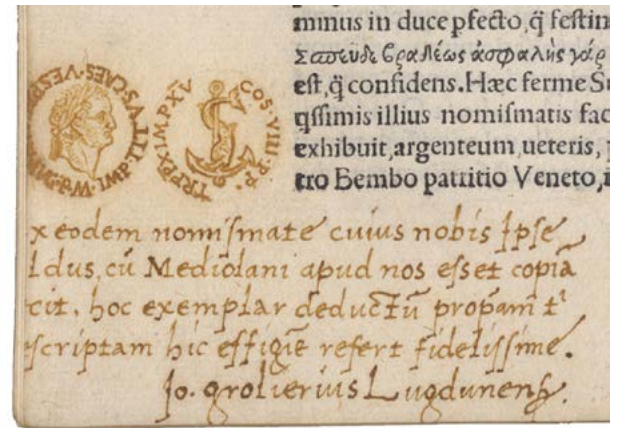 minus in duce pfecto, q̃ festin
Σπευδε βραδέως ἀσφαλὴς γάρ
est, q̃ confidens. Hæc ferme
qſſimis illius nomiſmatis fac
exhibuit, argenteum, ueteris,
tro Bembo patritio Veneto,
TR·P·IX·IMP·XV COS·VIII·P·P·
x eodem nomiſmate cuius nobis Ipſe
ldus, cũ Mediolani apud nos eſset copiã
cit. hoc exemplar deductũ propam tͥ
ſcriptam hic effigiẽ refert fideliſſime.
Jo. grolierius Lugdunenſ.